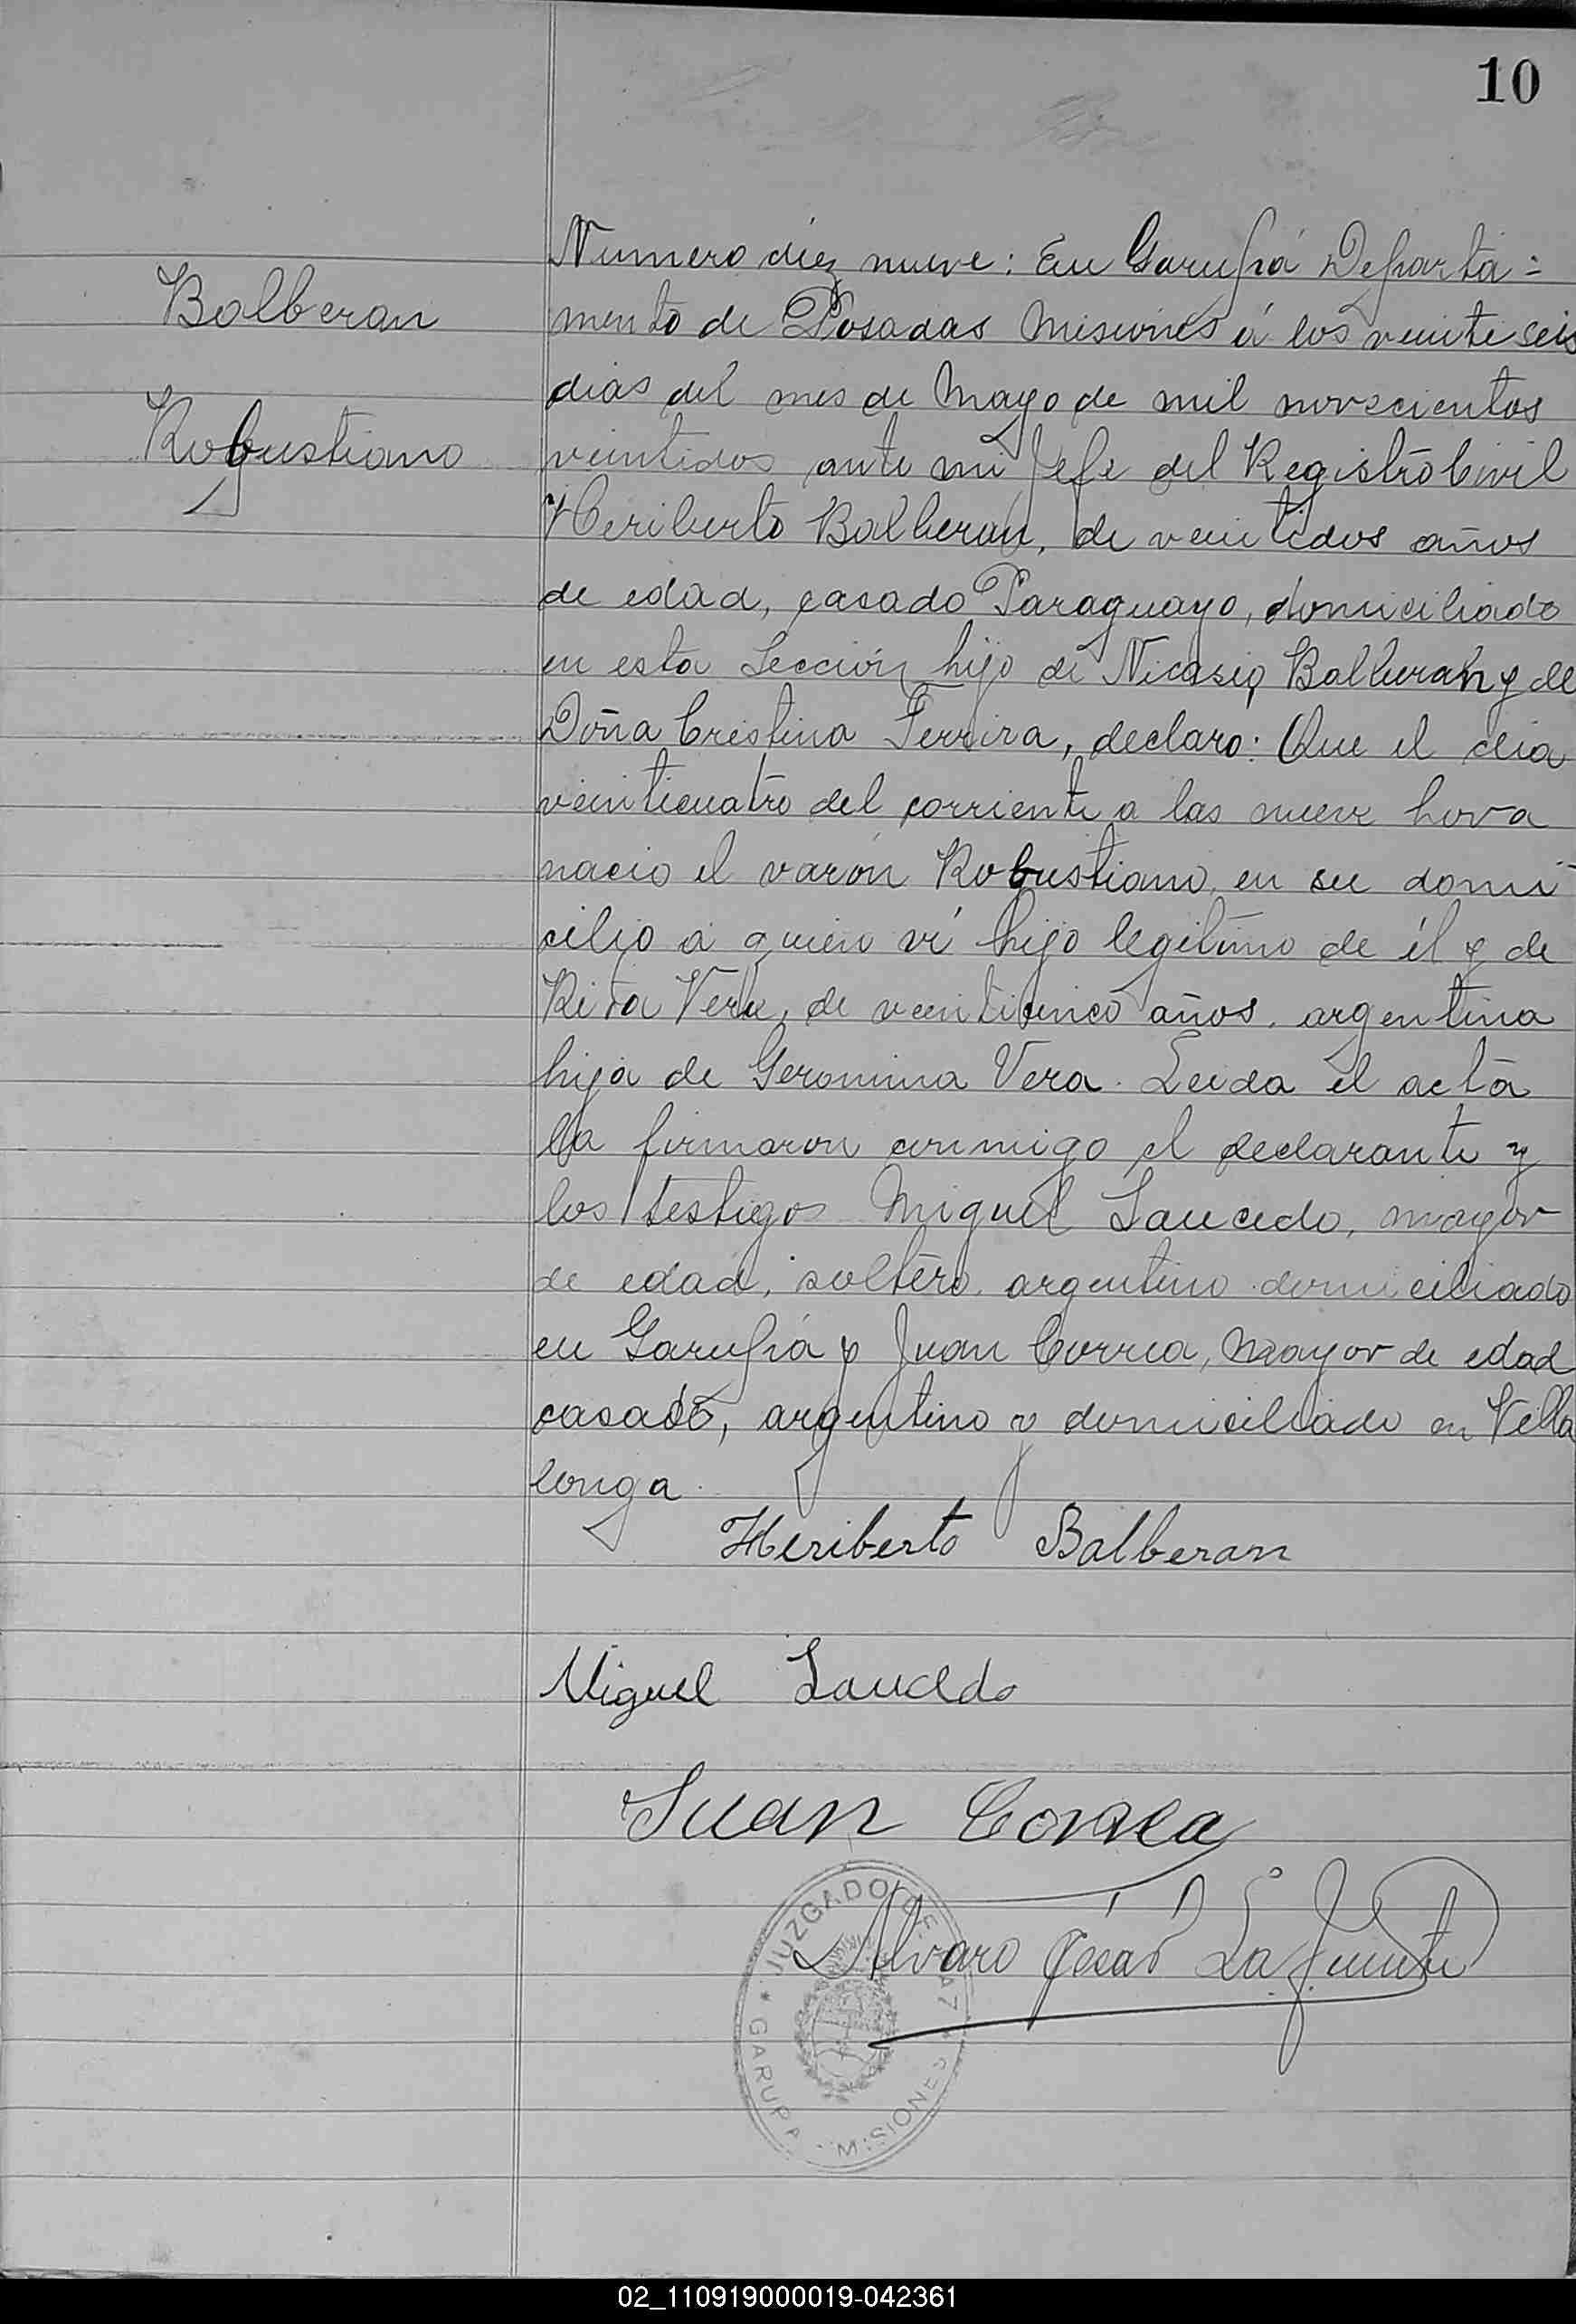 10
Numero diez nueve: En Garupá Departa=
Balberan
mento de Posadas Misiones á los veinte seis
dias del mes de Mayo de mil novecientos
Robustiano
veintidos ante mi Jefe del Registro Civil
Heriberto Balberan, de veintidos años
de edad, casado Paraguayo, domiciliado
en esta Sección hijo de Nicasio Balberan y de
Doña Cristina Ferrira, declaro: Que el dia
veinticuatro del corriente a las nueve hora
nacio el varón Robustiano, en su domi
cilio a quien ví hijo legitimo de él y de
Rita Vera, de veinticinco años, argentina
hija de Geronima Vera. Leida el acta
la firmaron conmigo el declarante y
los testigos Miguel Saucedo, mayor
de edad, soltero, argentino domiciliado
en Garupá y Juan Correa, mayor de edad
casado, argentino y domiciliado en Villa
longa.
Heriberto Balberan
Miguel Saucedo
Juan Correa
Alvaro Oscar Lafuente
JUZGADO DE PAZ
* GARUPA - MISIONES
02_110919000019-042361